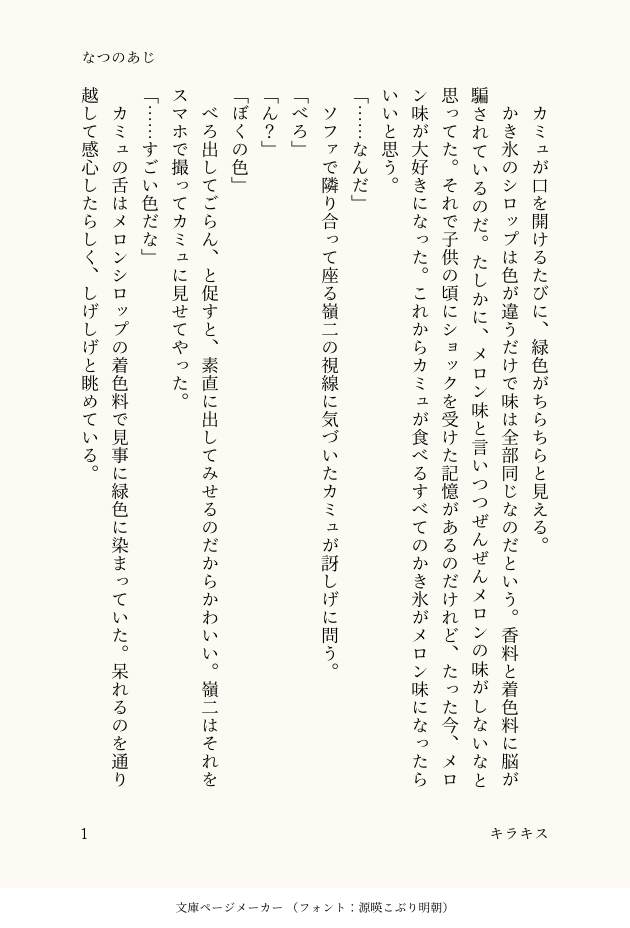 なつのあじ
カミュが口を開けるたびに、緑色がちらちらと見える。
かき氷のシロップは色が違うだけで味は全部同じなのだという。香料と着色料に脳が
騙されているのだ。たしかに、メロン味と言いつつぜんぜんメロンの味がしないなと
思ってた。それで子供の頃にショックを受けた記憶があるのだけれど、たった今、メロ
ン味が大好きになった。これからカミュが食べるすべてのかき氷がメロン味になったら
いいと思う。
「……なんだ」
ソファで隣り合って座る嶺二の視線に気づいたカミュが訝しげに問う。
「べろ」
「ん？」
「ぼくの色」
べろ出してごらん、と促すと、素直に出してみせるのだからかわいい。嶺二はそれを
スマホで撮ってカミュに見せてやった。
「……すごい色だな」
カミュの舌はメロンシロップの着色料で見事に緑色に染まっていた。呆れるのを通り
越して感心したらしく、しげしげと眺めている。
キラキス
1
文庫ページメーカー （フォント：源暎こぶり明朝）